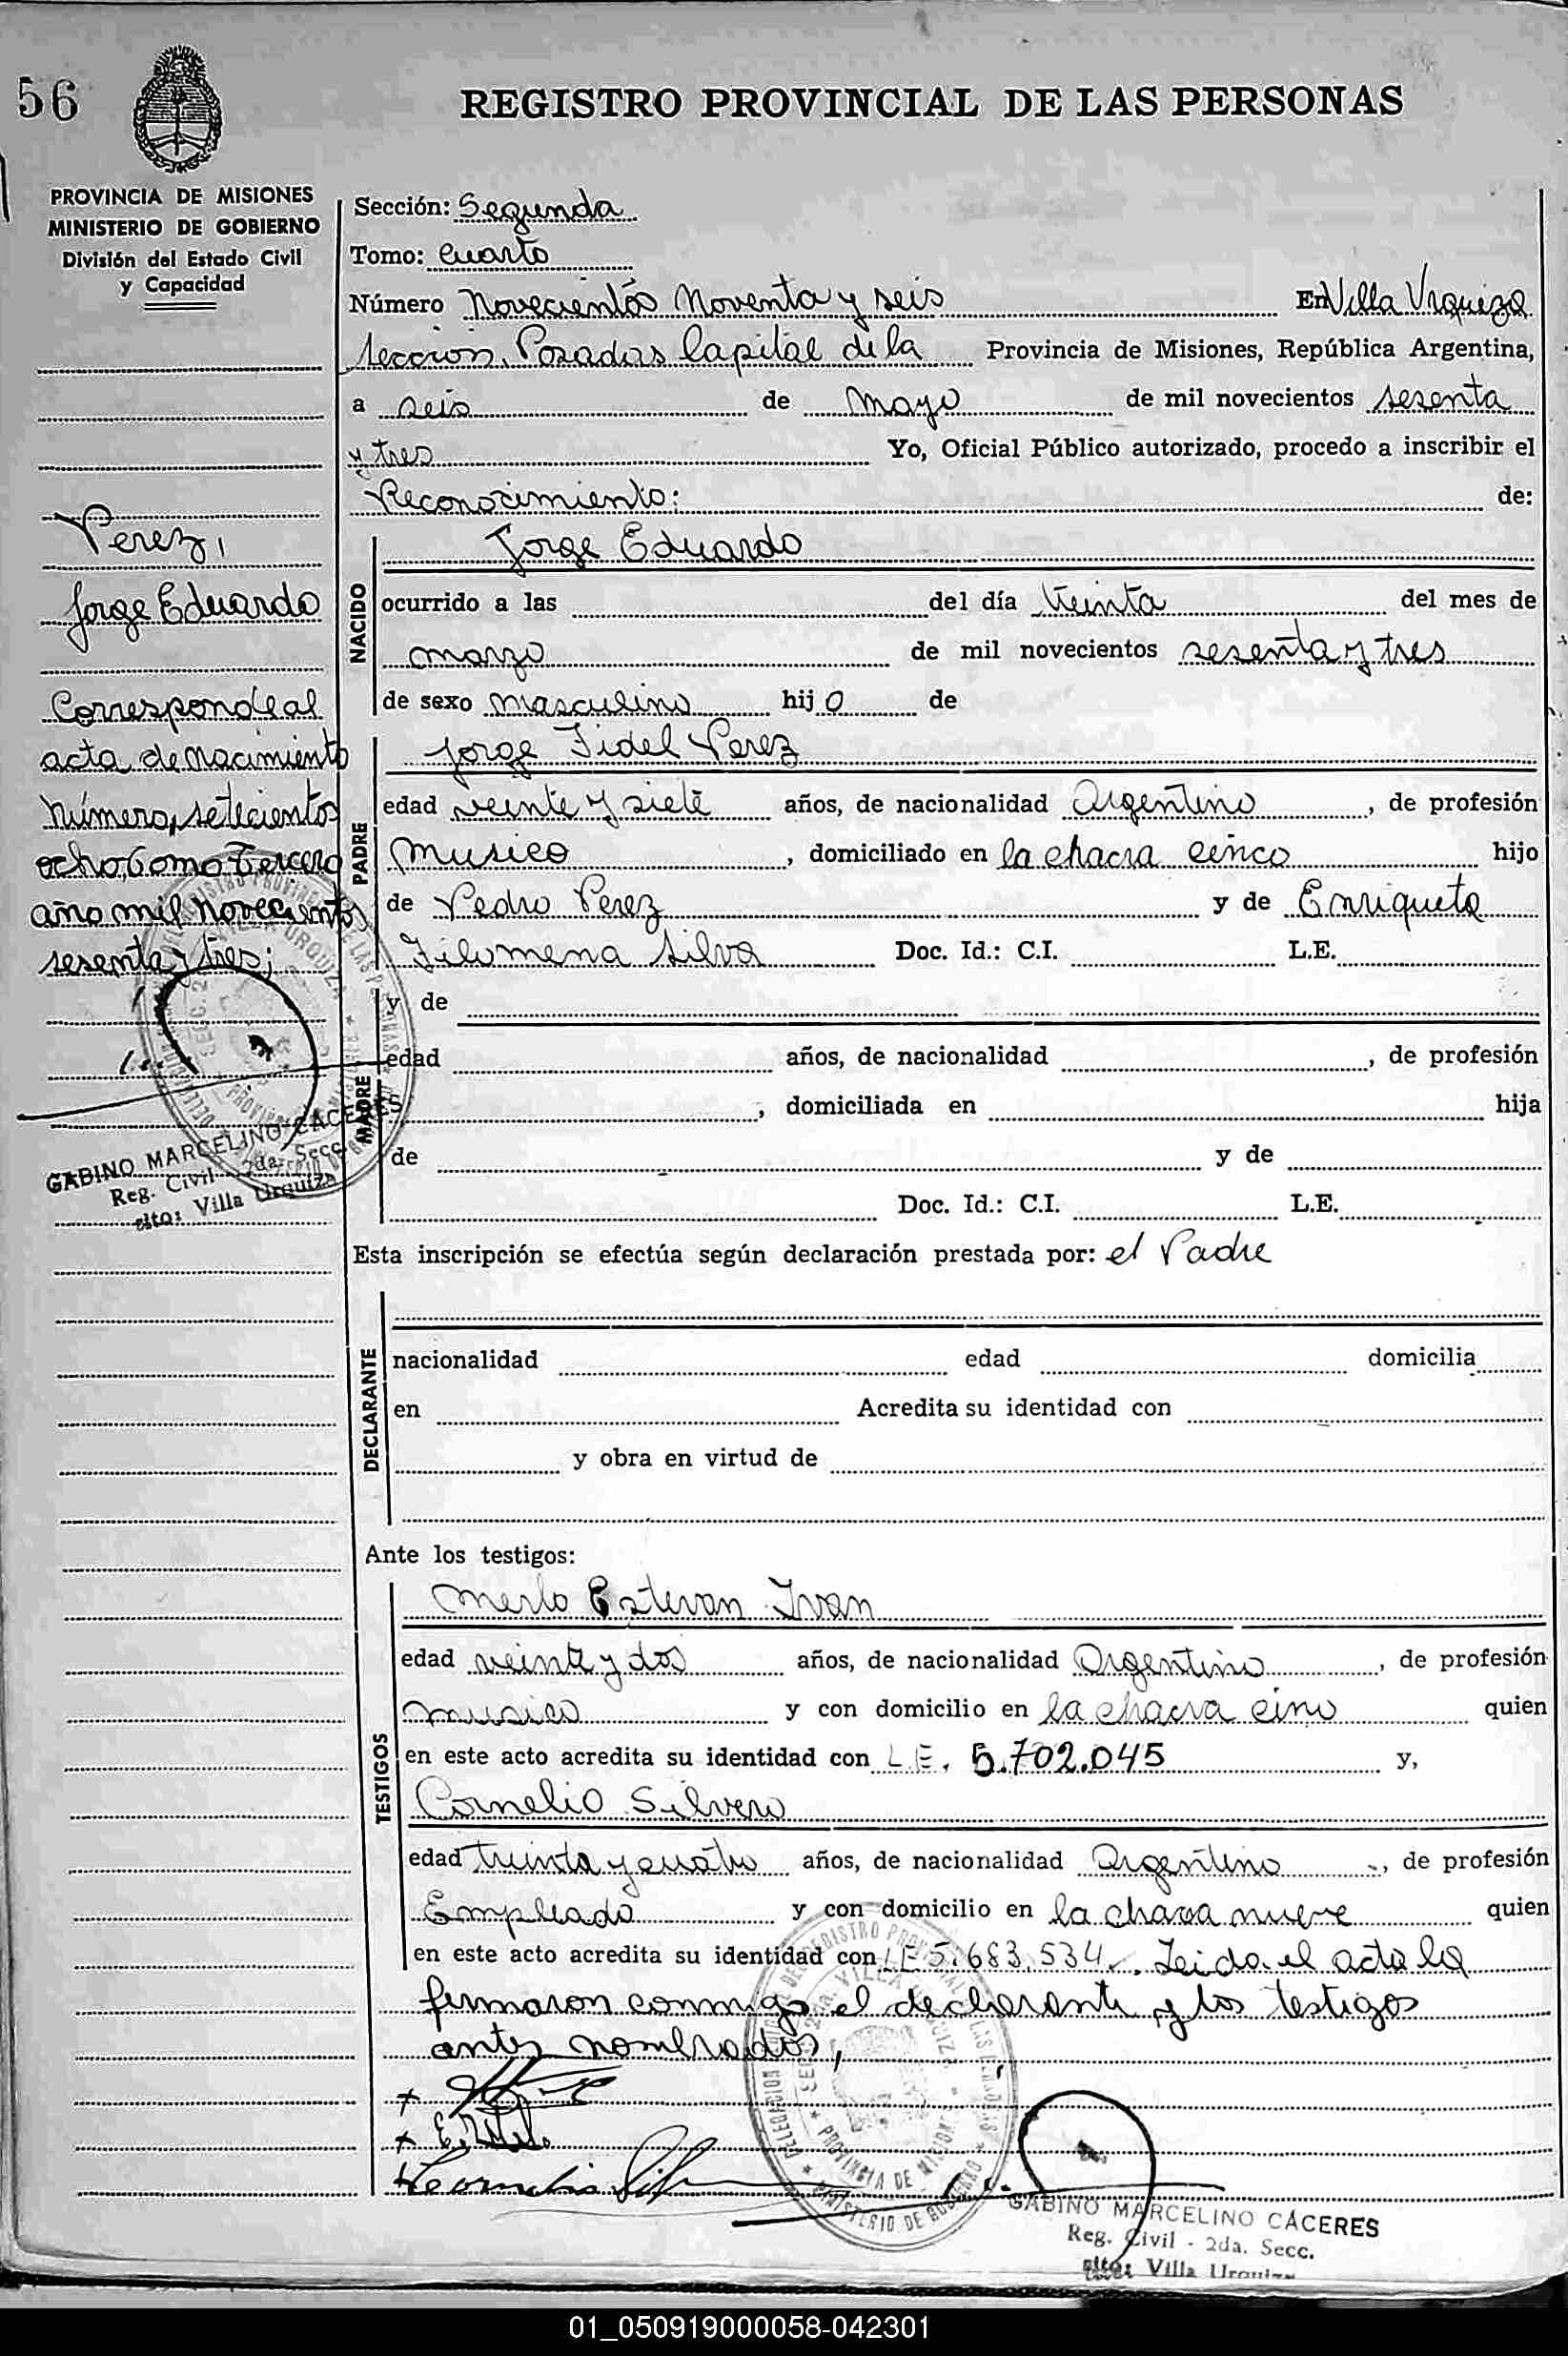 56
REGISTRO PROVINCIAL DE LAS PERSONAS
PROVINCIA DE MISIONES
MINISTERIO DE GOBIERNO
División del Estado Civil
y Capacidad
Perez,
Jorge Eduardo
Corresponde al
acta de nacimiento
número, setecientos
ocho, tomo Tercero
año mil novecientos
sesenta y tres;
GABINO MARCELINO CACERES
Reg. Civil - 2da. Secc.
Villa Urquiza
Sección: Segunda
Tomo: Cuarto
Número Novecientos Noventa y seis En Villa Urquiza
seccion, Posadas Capital de la Provincia de Misiones, República Argentina,
a seis de mayo de mil novecientos sesenta
y tres Yo, Oficial Público autorizado, procedo a inscribir el
Reconocimiento: de:
NACIDO
Jorge Eduardo
ocurrido a las del día treinta del mes de
marzo de mil novecientos sesenta y tres
de sexo masculino hijo de
PADRE
Jorge Fidel Perez
edad veinte y siete años, de nacionalidad Argentino, de profesión
musico, domiciliado en la chacra cinco hijo
de Pedro Perez y de Enriqueta
Filomena Silva Doc. Id.: C.I. L.E.
MADRE
y de
edad años, de nacionalidad , de profesión
, domiciliada en hija
de y de
Doc. Id.: C.I. L.E.
Esta inscripción se efectúa según declaración prestada por: el Padre
DECLARANTE
nacionalidad edad domicilia
en Acredita su identidad con
y obra en virtud de
Ante los testigos:
TESTIGOS
Merlo Estevan Ivan
edad veinte y dos años, de nacionalidad Argentino, de profesión
musico y con domicilio en la chacra cinco quien
en este acto acredita su identidad con L.E. 5.702.045 y,
Cornelio Silvero
edad treinta y cuatro años, de nacionalidad Argentino, de profesión
Empleado y con domicilio en la chacra nueve quien
en este acto acredita su identidad con L E 5.683.534. Leida el acta la
firmaron conmigo el declarante y los testigos
antes nombrados,
GABINO MARCELINO CACERES
Reg. Civil - 2da. Secc.
Villa Urquiza
01_050919000058-042301